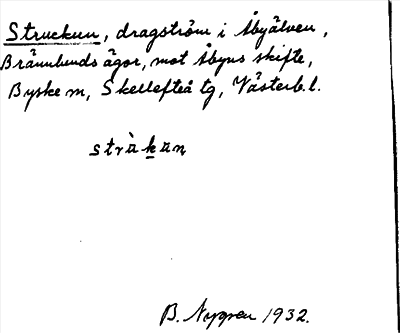 Struckun, dragström i Åbyälven,
Brännlunds ägor, mot Åbyns skifte,
Byske m, Skellefteå tg, Västerb.l.
stràkan
B. Nygren 1932.